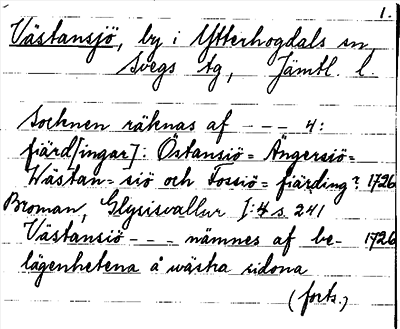 1.
Västansjö, by i Ytterhogdals sn,
Svegs tg, Jämtl. l.
Socknen räknas af - - - 4:
fiärd[ingar]: Östansiö= Ängersiö=
Wästan=siö och Fossiö=fiärding? 1726
Broman, Glysisvallur I:4 s. 241
Västansiö - - - nämnes af be- 1726
lägenhetena å wästra sidona
(forts.)